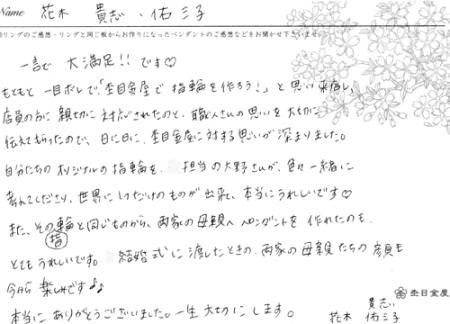 Name 花木 貴志・佑三子
リングのご感想・リングと同じ板からお作りになったペンダントのご感想などをお聞かせ下さいませ。
一言で 大満足!! です♡
もともと 一目ボレで「杢目金屋で 指輪を作ろう!」と思い 来店し、
店員の方に 親切に 対応されたのと、職人さんの思いを 大切に
伝えて頂いたので、日に日に、杢目金屋に対する思いが 深まりました。
自分たちの オリジナルの 指輪を、担当の大野さんが、色々 一緒に
考えてくださり、世界に 1つだけのものが 出来て、本当に うれしいです♡
また、その指輪と同じものから、両家の 母親へ ペンダントを 作れたのも
とても うれしいです。 結婚式に 渡したときの、両家の 母親 たちの 顔も
今から 楽しみです♪♪
本当に ありがとうございました。一生 大切に します。
杢目金屋
貴志
花木 佑三子